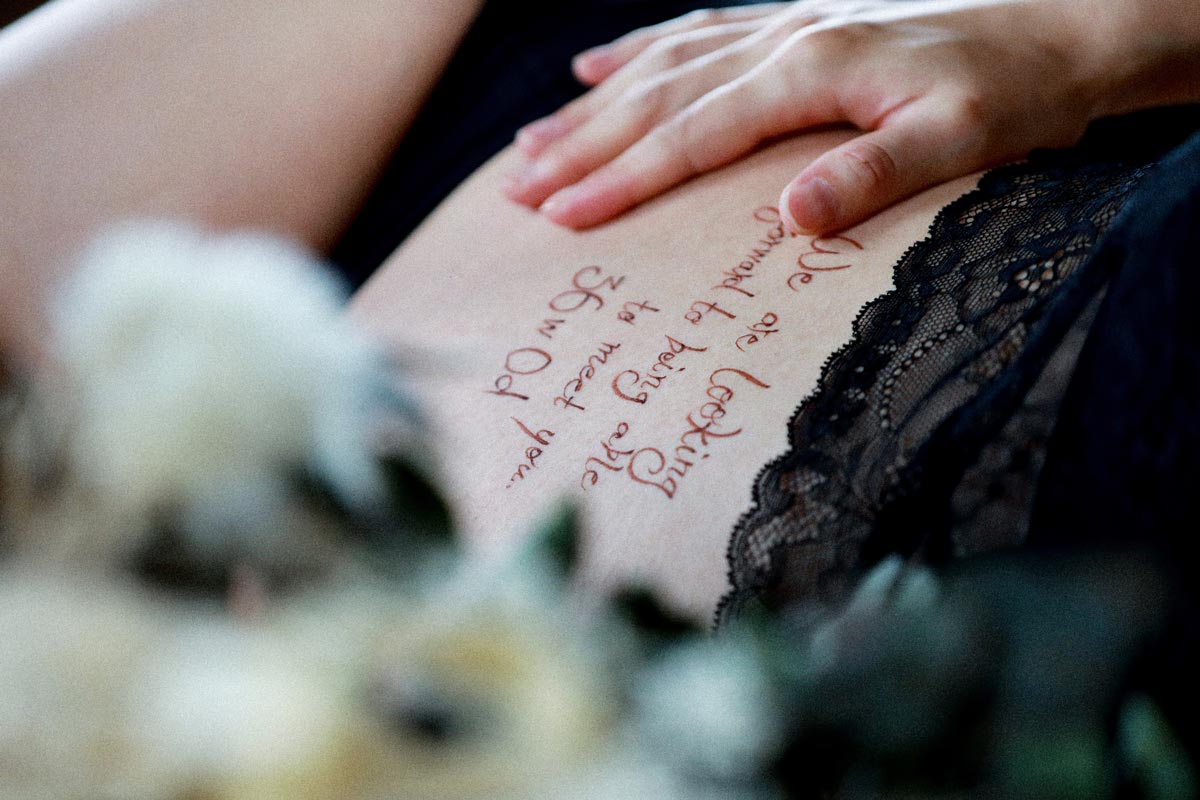 We are looking
forward to being able
to meet you..
36w0d